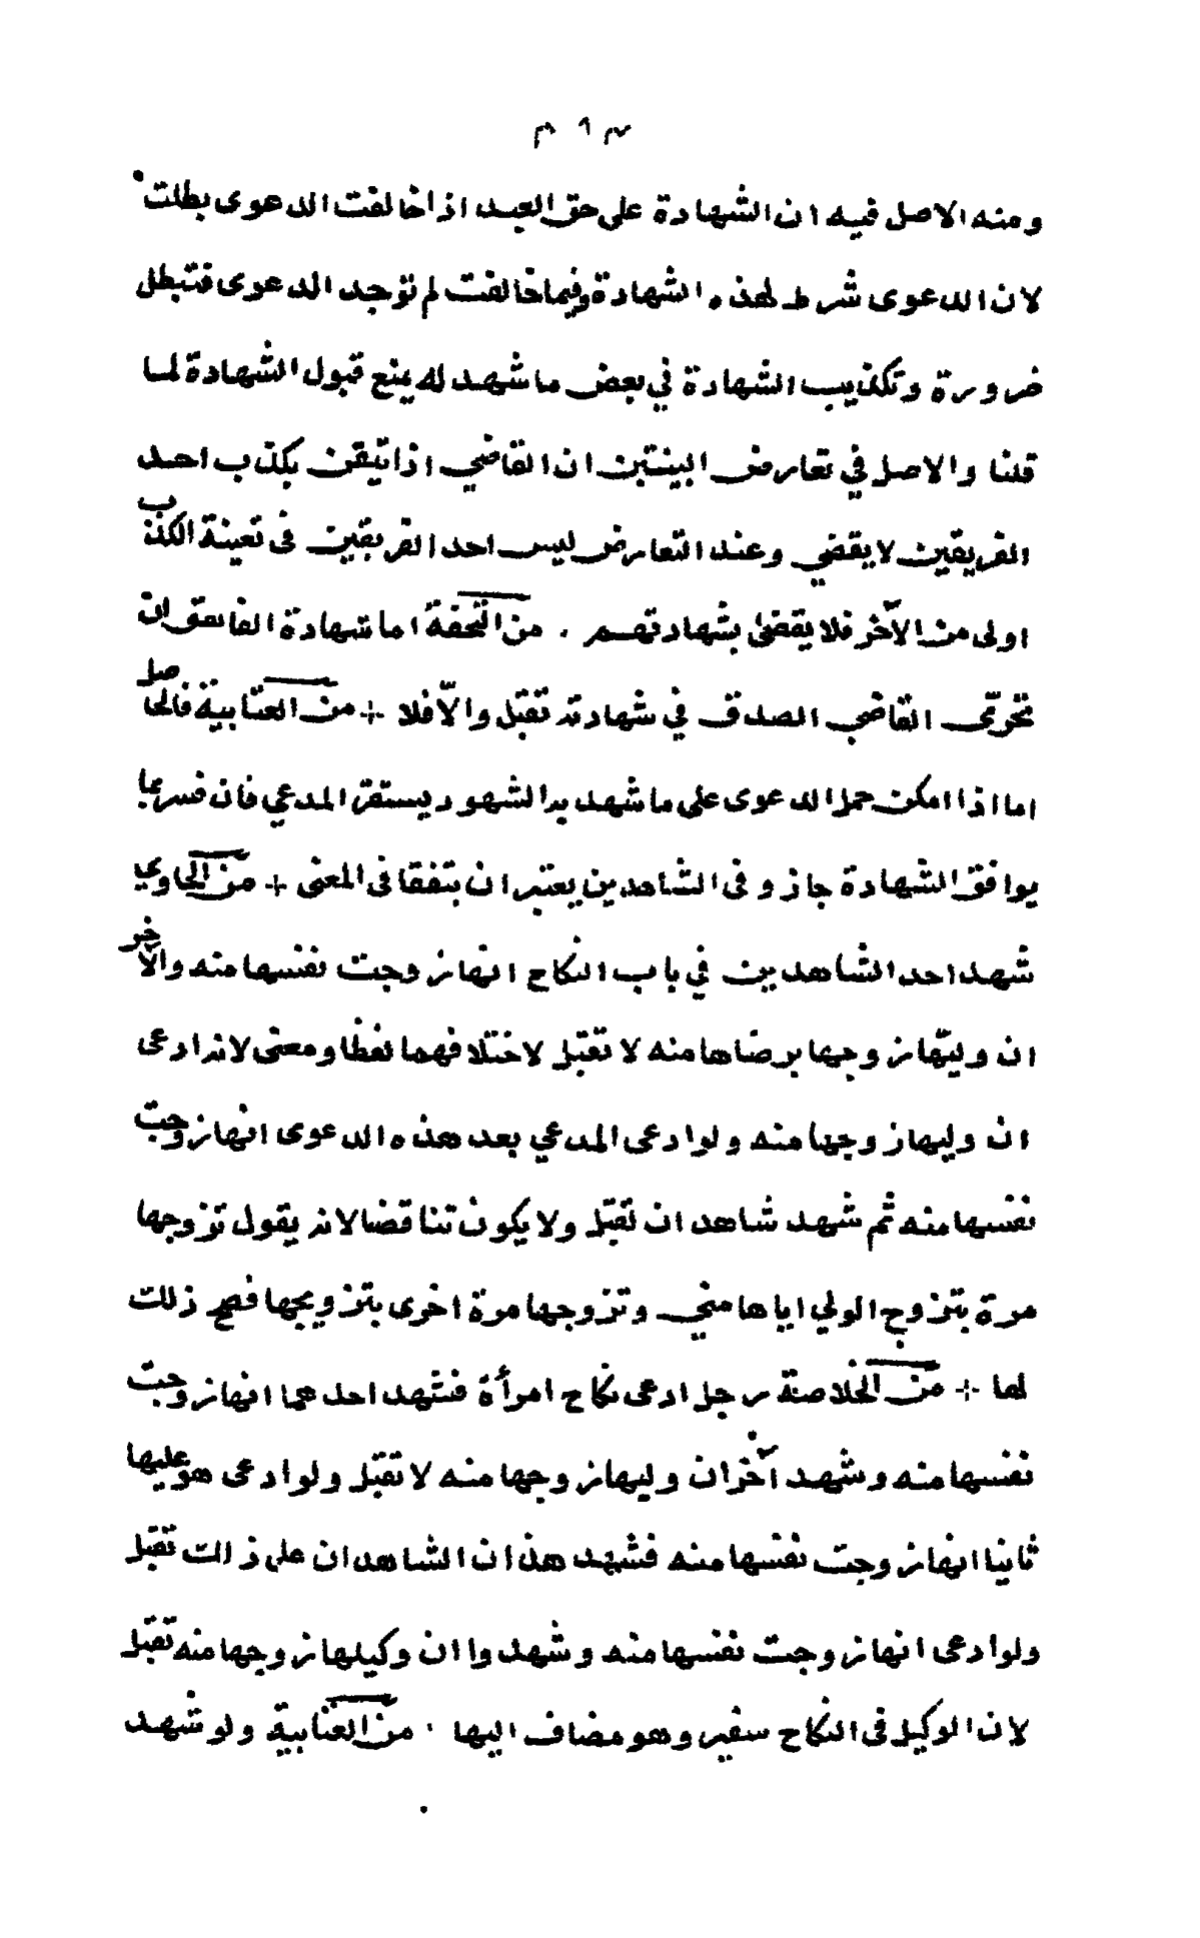 ومنه الاصل فيه ان الشهادة على حق العبد اذا خالفت الدعوى بطلت
لان الدعوى شرط لهذه الشهادة وفيما خالفت لم توجد الدعوى فتبطل
ضرورة وتكذيب الشهادة في بعض ما شهد له يمنع قبول الشهادة لما
قلنا والاصل في تعارض البينتين ان القاضي اذا تيقن بكذب احد
الفريقين لا يقضي وعند التعارض ليس احد الفريقين فى تعينة الكذب
اولى من الآخر فلا يقضى بشهادتهم . من التحفة اما شهادة الفاسق ان
تحرّى القاضي الصدق في شهادته تقبل والّا فلا + من العتابية فالحاصل
اما اذا امكن حمل الدعوى على ما شهد به الشهود يستفسر المدعي فان فسر بما
يوافق الشهادة جاز و فى الشاهدين يعتبر ان يتفقا فى المعنى + من الحاوي
شهد احد الشاهدين في باب النكاح انها زوجت نفسها منه والآخر
ان وليّها زوجها برضاها منه لا تقبل لاختلافهما لفظا ومعنى لانه ادعى
ان وليها زوجها منه ولوادعى المدعي بعد هذه الدعوى انها زوجت
نفسها منه ثم شهد شاهد ان تقبل ولا يكون تناقضا لانه يقول تزوجها
مرة بتزوج الولي اياها مني وتزوجها مرة اخرى بتزويجها فصح ذلك
لها + من الخلاصة رجل ادعى نكاح امرأة فشهد احدهما انها زوجت
نفسها منه وشهد آخران وليها زوجها منه لا تقبل ولوادعى هو عليها
ثانيا انها زوجت نفسها منه فشهد هذان الشاهدان على ذالك تقبل
ولوادعى انها زوجت نفسها منه وشهدوا ان وكيلها زوجها منه تقبل
لان الوكيل فى النكاح سفير وهو مضاف اليها . من العتابية ولو شهد